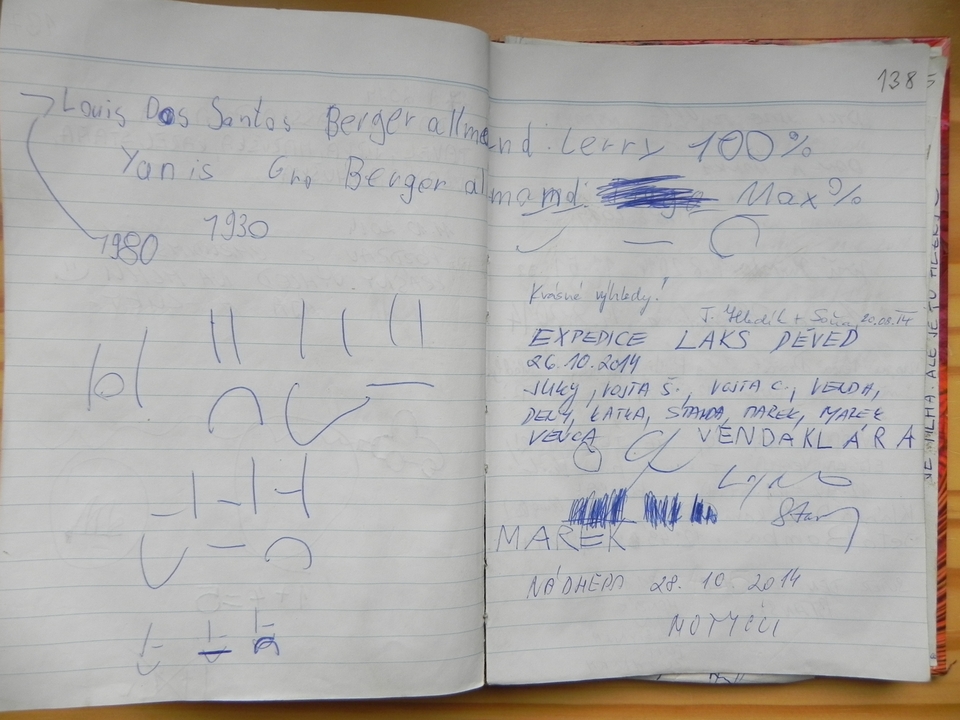 138
Louis Dos Santos Berger allmend. Lerry 100%
Yanis Gro Berger almamd. Max %
1930
1980
Krásné výhledy!
20.08.14
EXPEDICE LAKS DĚVED
26.10.2014
JUKY, VOJTA Š., VOJTA C., VENDA,
DENY, KATKA, STANDA, MAREK, MAREK
VENCA
VENDAKLÁRA
MAREK
NÁDHERA 28. 10. 2014